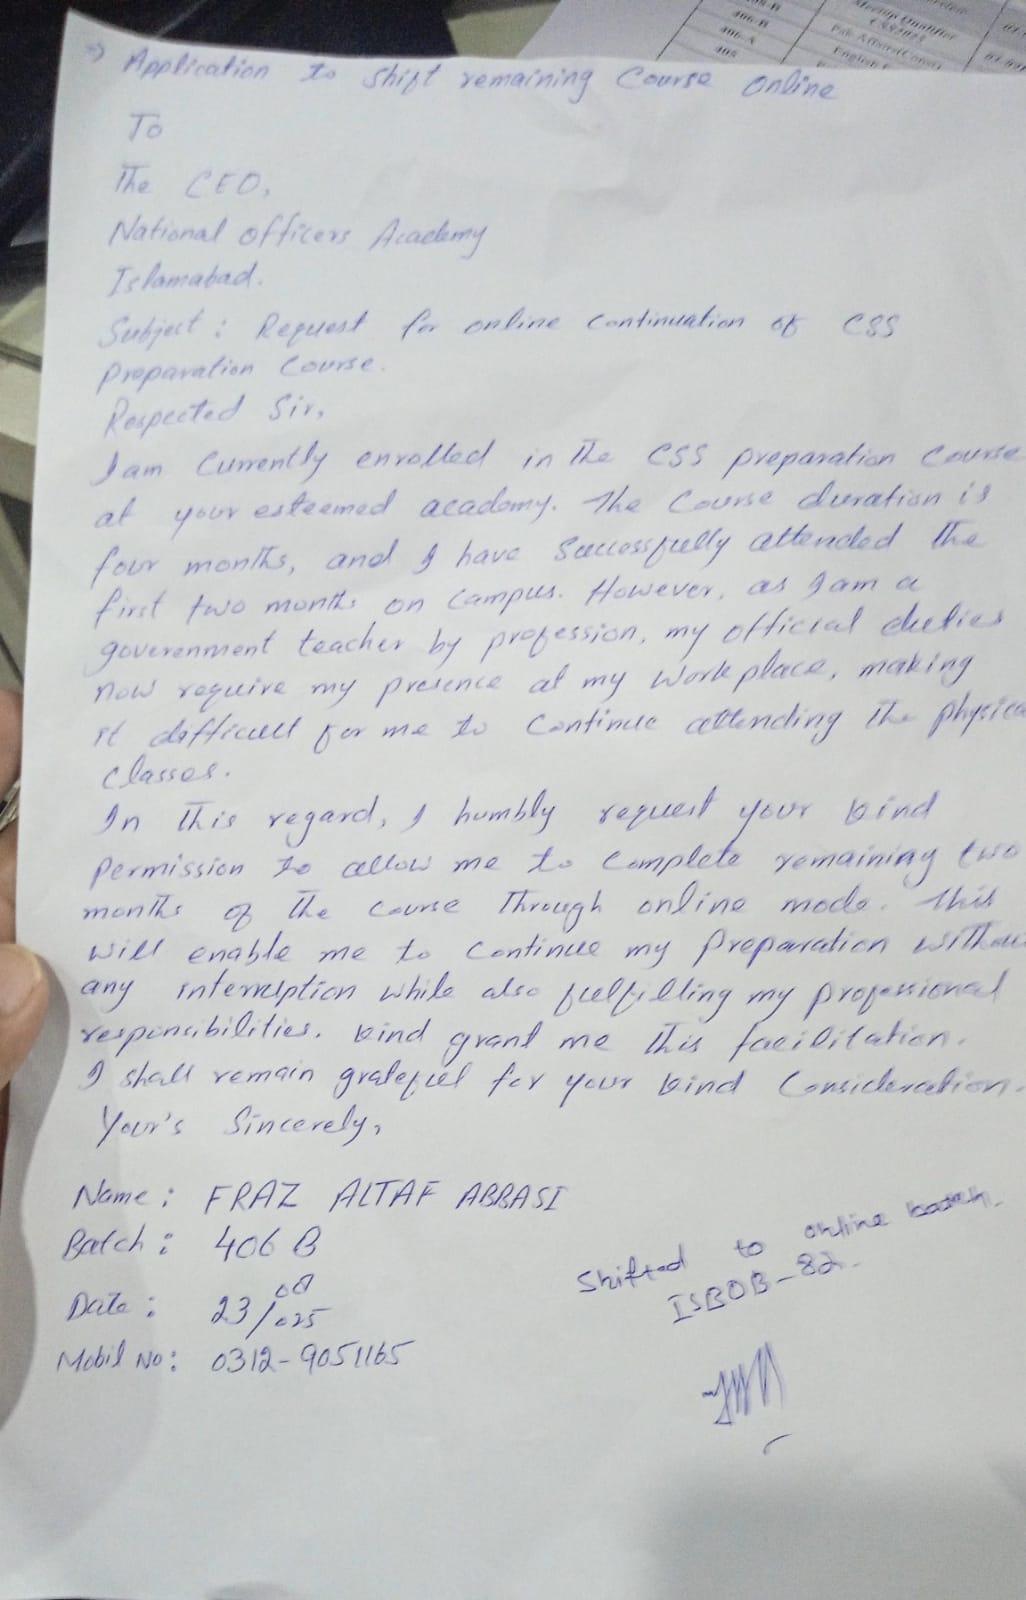 406-B
406-A
405
Meetup Qualifier
CSS2025
Pak Affairs
English
=> Application to shift remaining Course online
To
The CEO,
National officers Academy
Islamabad.
Subject : Request for online Continuation of CSS
Preparation Course.
Respected Sir,
I am Currently enrolled in the CSS preparation Course
at your esteemed academy. The Course duration is
four months, and I have Successfully attended the
first two months on Campus. However, as I am a
goverenment teacher by profession, my official duties
now require my presence at my Work place, making
it difficult for me to Continue attending the physica
Classes.
In this regard, I humbly request your kind
Permission to allow me to Complete remaining two
months of the Course Through online mode. This
will enable me to Continue my Preparation withou
any interruption while also fulfilling my professional
responsibilities. kind grant me this facilitation.
I shall remain grateful for your kind Consideration.
Your's Sincerely,
Name : FRAZ ALTAF ABBASI
Batch : 406 B
Shifted to online batch.
ISBOB-82.
Date : 23/08/025
Mobil No : 0312-9051165